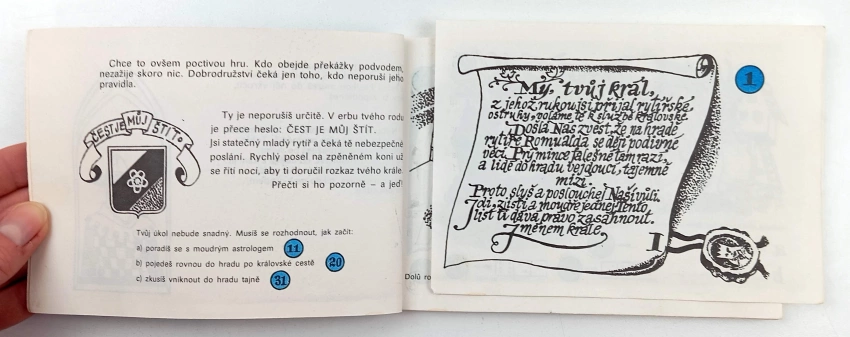 Chce to ovšem poctivou hru. Kdo obejde překážky podvodem,
nezažije skoro nic. Dobrodružství čeká jen toho, kdo neporuší jeho
pravidla.
ČEST JE MŮJ ŠTÍT
Ty je neporušíš určitě. V erbu tvého rodu
je přece heslo: ČEST JE MŮJ ŠTÍT.
Jsi statečný mladý rytíř a čeká tě nebezpečné
poslání. Rychlý posel na zpěněném koni už
se řítí nocí, aby ti doručil rozkaz tvého krále.
Přečti si ho pozorně – a jeď!
Tvůj úkol nebude snadný. Musíš se rozhodnout, jak začít:
a) poradíš se s moudrým astrologem 11
b) pojedeš rovnou do hradu po královské cestě 20
c) zkusíš vniknout do hradu tajně 31
Dolů
1
My, tvůj král,
z jehož rukou jsi přijal rytířské
ostruhy, voláme tě k službě královské.
Došla Nás zvěst, že na hradě
rytíře Romualda se dějí podivné
věci. Prý mince falešné tam razí,
a lidé do hradu vejdoucí, tajemně
mizí.
Proto slyš a poslouchej Naši vůli.
Jdi, zjisti a moudře jednej. Tento
list ti dává právo zasáhnout.
Jménem krále,
I